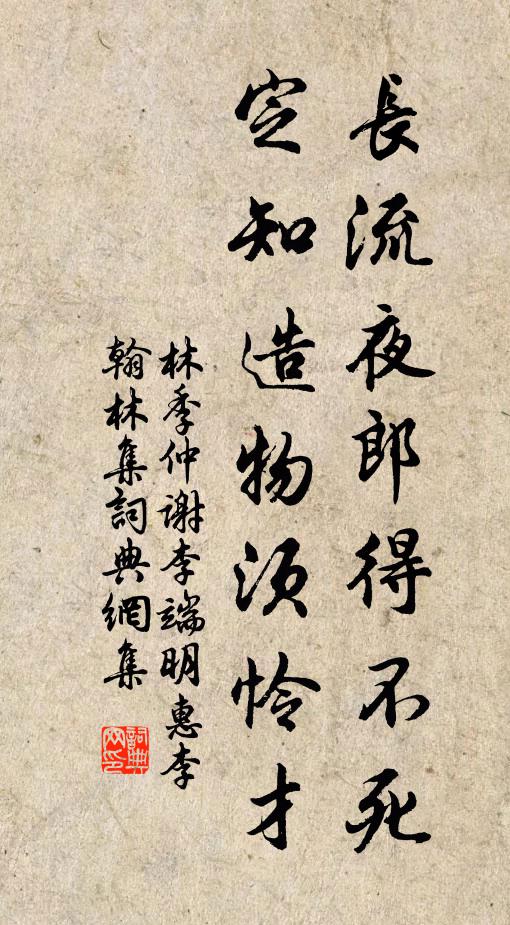 長流夜郎得不死
定知造物須怜才
林季仲谢李端明惠李
翰林集詞典網集
詞典網印